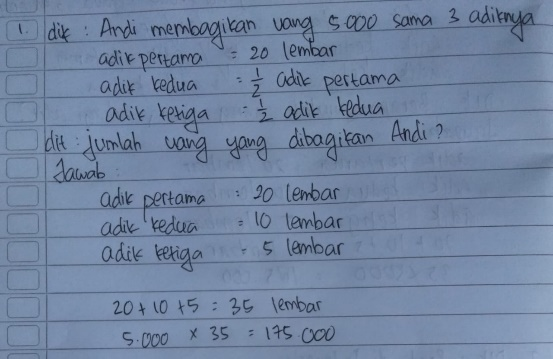 1. dik : Andi membagikan uang 5.000 sama 3 adiknya
adik pertama = 20 lembar
adik kedua = 1/2 adik pertama
adik ketiga = 1/2 adik kedua
dit : jumlah uang yang dibagikan Andi?
Jawab :
adik pertama = 20 lembar
adik kedua = 10 lembar
adik ketiga = 5 lembar
20 + 10 + 5 = 35 lembar
5.000 x 35 = 175 000